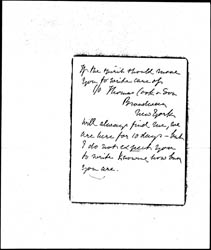 If the spirit should move
you to write care of
c/o Thomas Cook & Son
Broadway
New York
will always find me, we
are here for 10 days - but
I do not expect you
to write knowing how busy
you are.